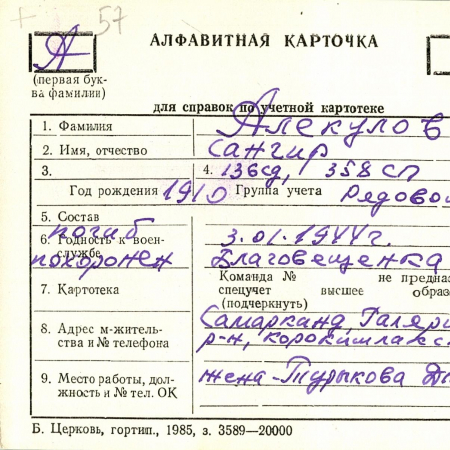 57
А
АЛФАВИТНАЯ КАРТОЧКА
(первая бук-
ва фамилии)
для справок по учетной картотеке
1. Фамилия Алекулов
2. Имя, отчество Сангир
3. 4. 136сд, 358сп
Год рождения 1910 Группа учета Рядовой
5. Состав
погиб
6. Годность к воен- 3.01.1944г.
службе
похоронен Благовещенка
Команда № не предназ
7. Картотека спецучет высшее образо
(подчеркнуть)
8. Адрес м-житель- Самарканд, Галяри
ства и № телефона р-н,
9. Место работы, дол- жена-Турыкова
жность и № тел. ОК
Б. Церковь, гортип., 1985, з. 3589—20000